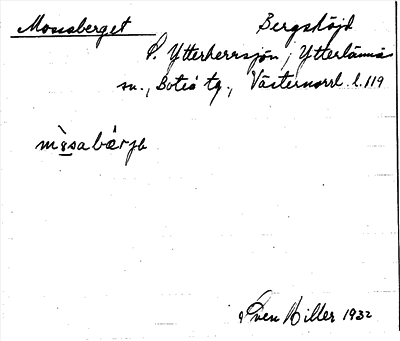 Mossaberget Bergshöjd
P. Ytterherrsjön, Ytterlännäs
sn., Boteå tg., Västernorrl. l. 119
mòsabárjə
Sven Hiller 1932